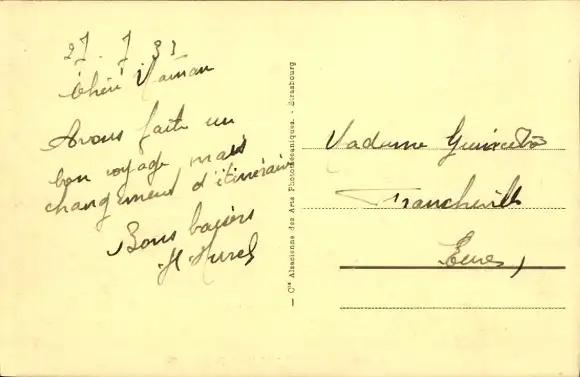 27. 7 31
Chère Maman
Avons fait un
bon voyage mais
changement d'itinéraire
Bons baisers
H. Hurel
— Cie Alsacienne des Arts Photomécaniques. - Strasbourg
Madame
Francheville
Eure,